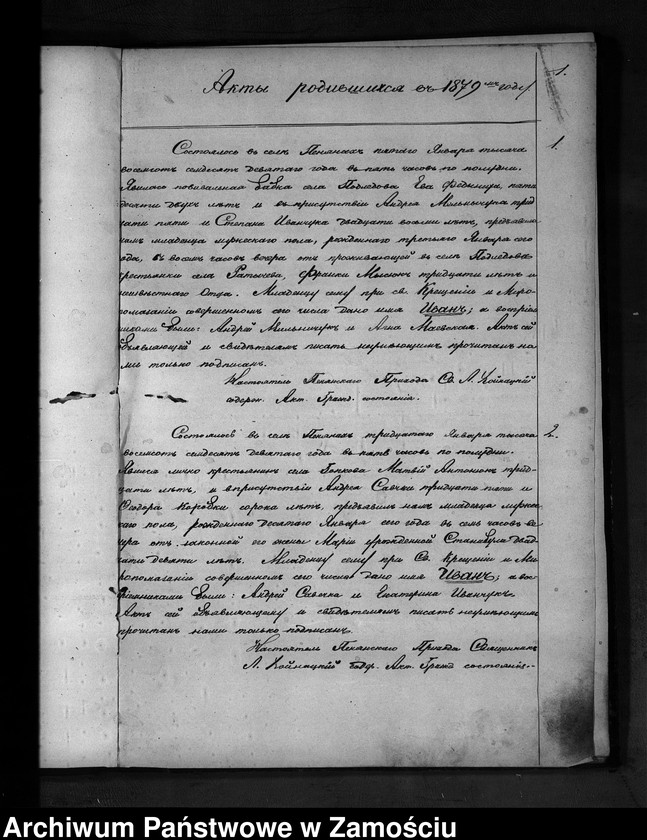 1.
Акты родившихся въ 1879мъ году.
1.
Состоялось въ селѣ Пенянахъ пятаго Января тысяча
восемсотъ семдесятъ девятаго года въ пять часовъ по полудни.
Явилась повивальная бабка села Подледова Ева Федыница, пять
десяти двухъ лѣтъ и въ присутствіи Андрея Мельничука трид
цати пяти и Степана Иванчука двадцати восьми лѣтъ, предъявила
намъ младенца мужескаго пола, рожденнаго третьяго Января сего
года, въ восемъ часовъ вечера отъ проживающей въ селѣ Подледова
крестьянки села Ратычева, Франки тридцати лѣтъ и
неизвѣстнаго Отца. Младенцу сему при св. Крещеніи и Миро-
помазаніи совершенномъ сего числа дано имя Иванъ; а воспрі
никами были: Андрей Мельничукъ и Анна Маевская. Актъ сей
объявляющей и свидѣтелямъ писать неумѣющимъ прочитанъ на
ми только подписанъ.
Настоятель Пенянскаго Прихода Св. Л. Хойнацкій
содерж. Акт. Гражд. состоянія.
2.
Состоялось въ селѣ Пенянахъ тридцатаго Января тысяча
восемсотъ семдесятъ девятаго года въ пять часовъ по полудни.
Явился лично крестьянинъ села Матвій Антонюк трид-
цати лѣтъ, и въ присутствіи Андрея Савчка тридцати пяти и
Федора Коробки сорока лѣтъ, предъявилъ намъ младенца мужес
каго пола, рожденнаго десятаго Января сего года въ семь часовъ ве
чера отъ законной его жены Маріи урожденной двад
цати девяти лѣтъ. Младенцу сему при Св. Крещеніи и Ми
ропомазаніи совершенномъ сего числа дано имя Иванъ; а вос-
пріемниками были: Андрей Савчка и Екатерина Иванчукъ.
Актъ сей объявляющему и свидѣтелямъ писать неумѣющимъ
прочитанъ нами только подписанъ.
Настоятель Пенянскаго Прихода Священникъ
Л. Хойнацкій содер. Акт. Гражд состоянія.
Archiwum Państwowe w Zamościu